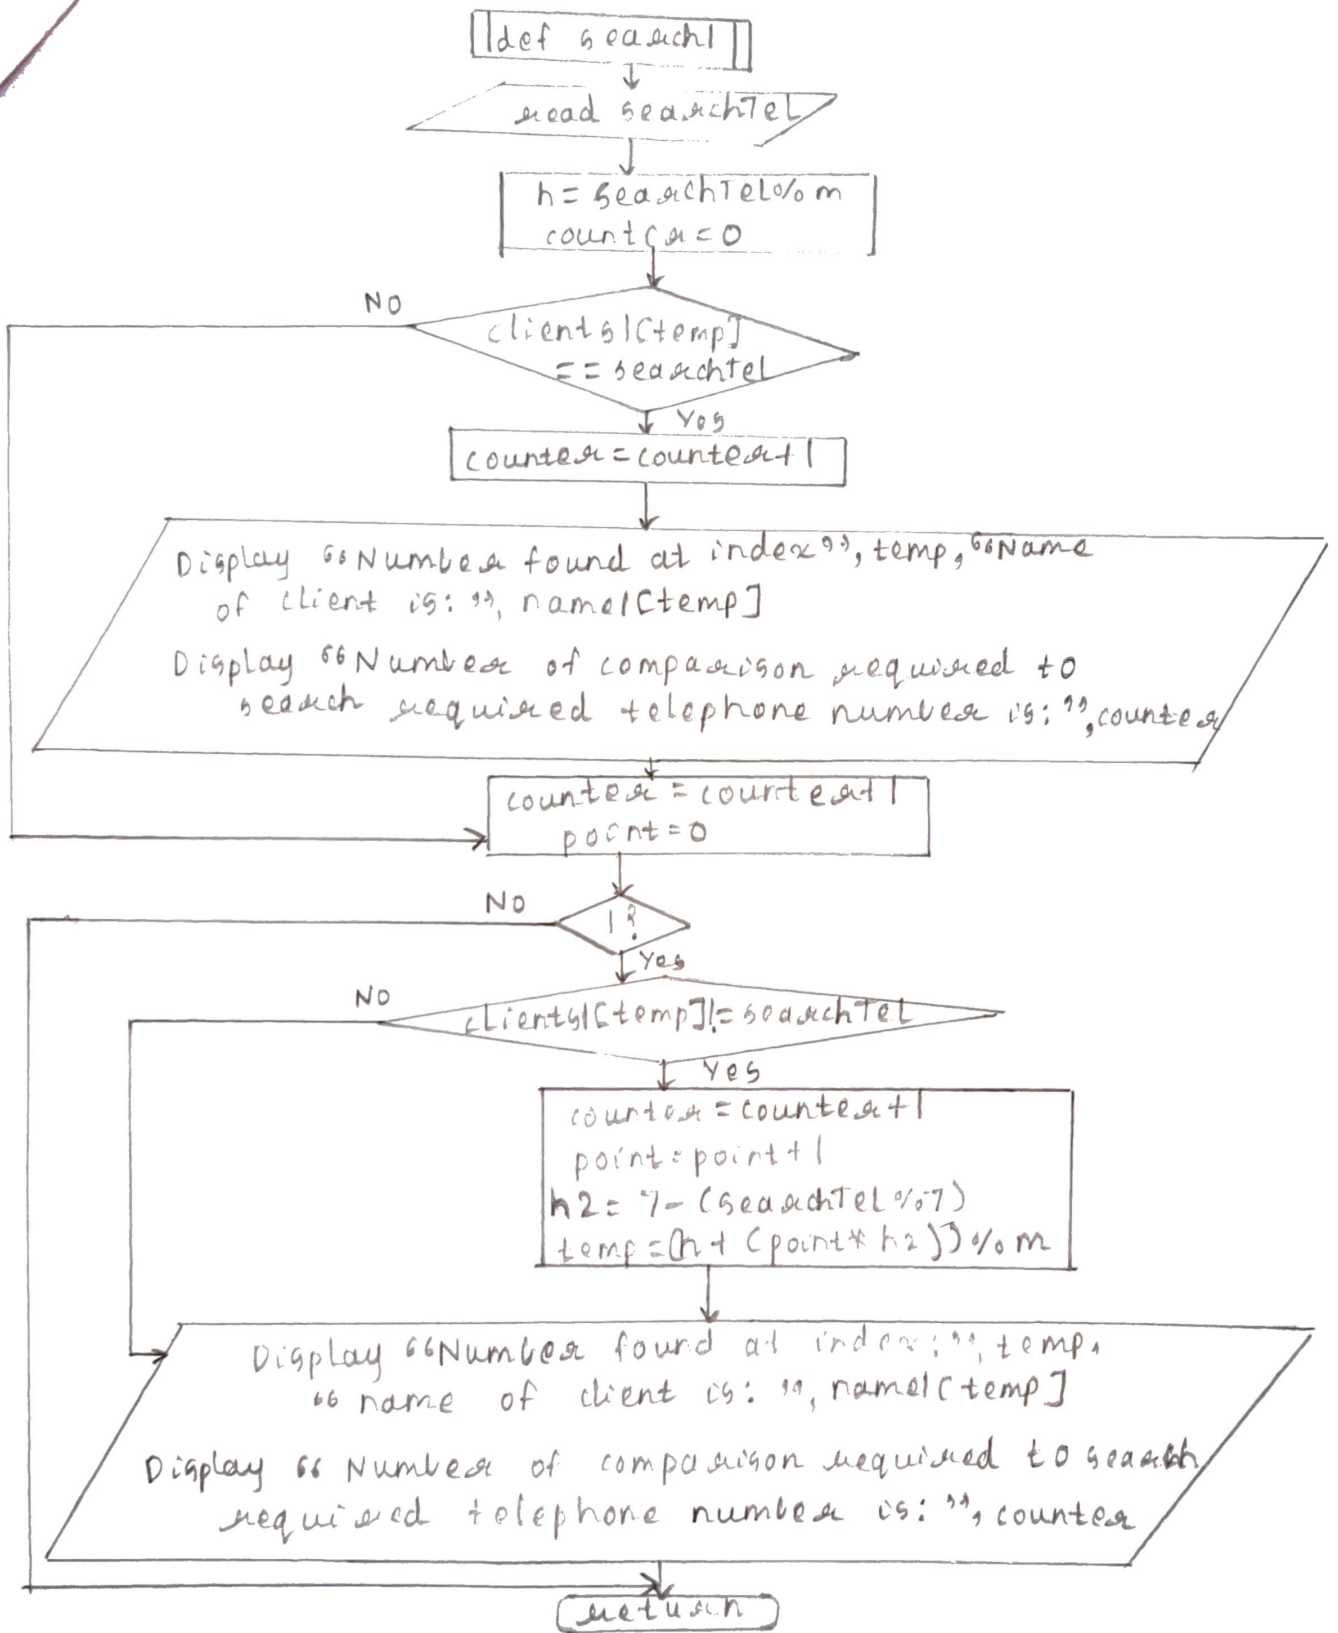 def search1
read searchTel
h = searchTel % m
counter = 0
NO
clients1[temp]
== searchTel
Yes
counter = counter + 1
Display “Number found at index”, temp, “Name
of client is: ”, name1[temp]
Display “Number of comparison required to
search required telephone number is: ”, counter
counter = counter + 1
point = 0
NO
1?
Yes
NO
clients1[temp] != searchTel
Yes
counter = counter + 1
point = point + 1
h2 = 7 - (searchTel % 7)
temp = (h + (point * h2)) % m
Display “Number found at index: ”, temp,
“name of client is: ”, name1[temp]
Display “Number of comparison required to search
required telephone number is: ”, counter
return